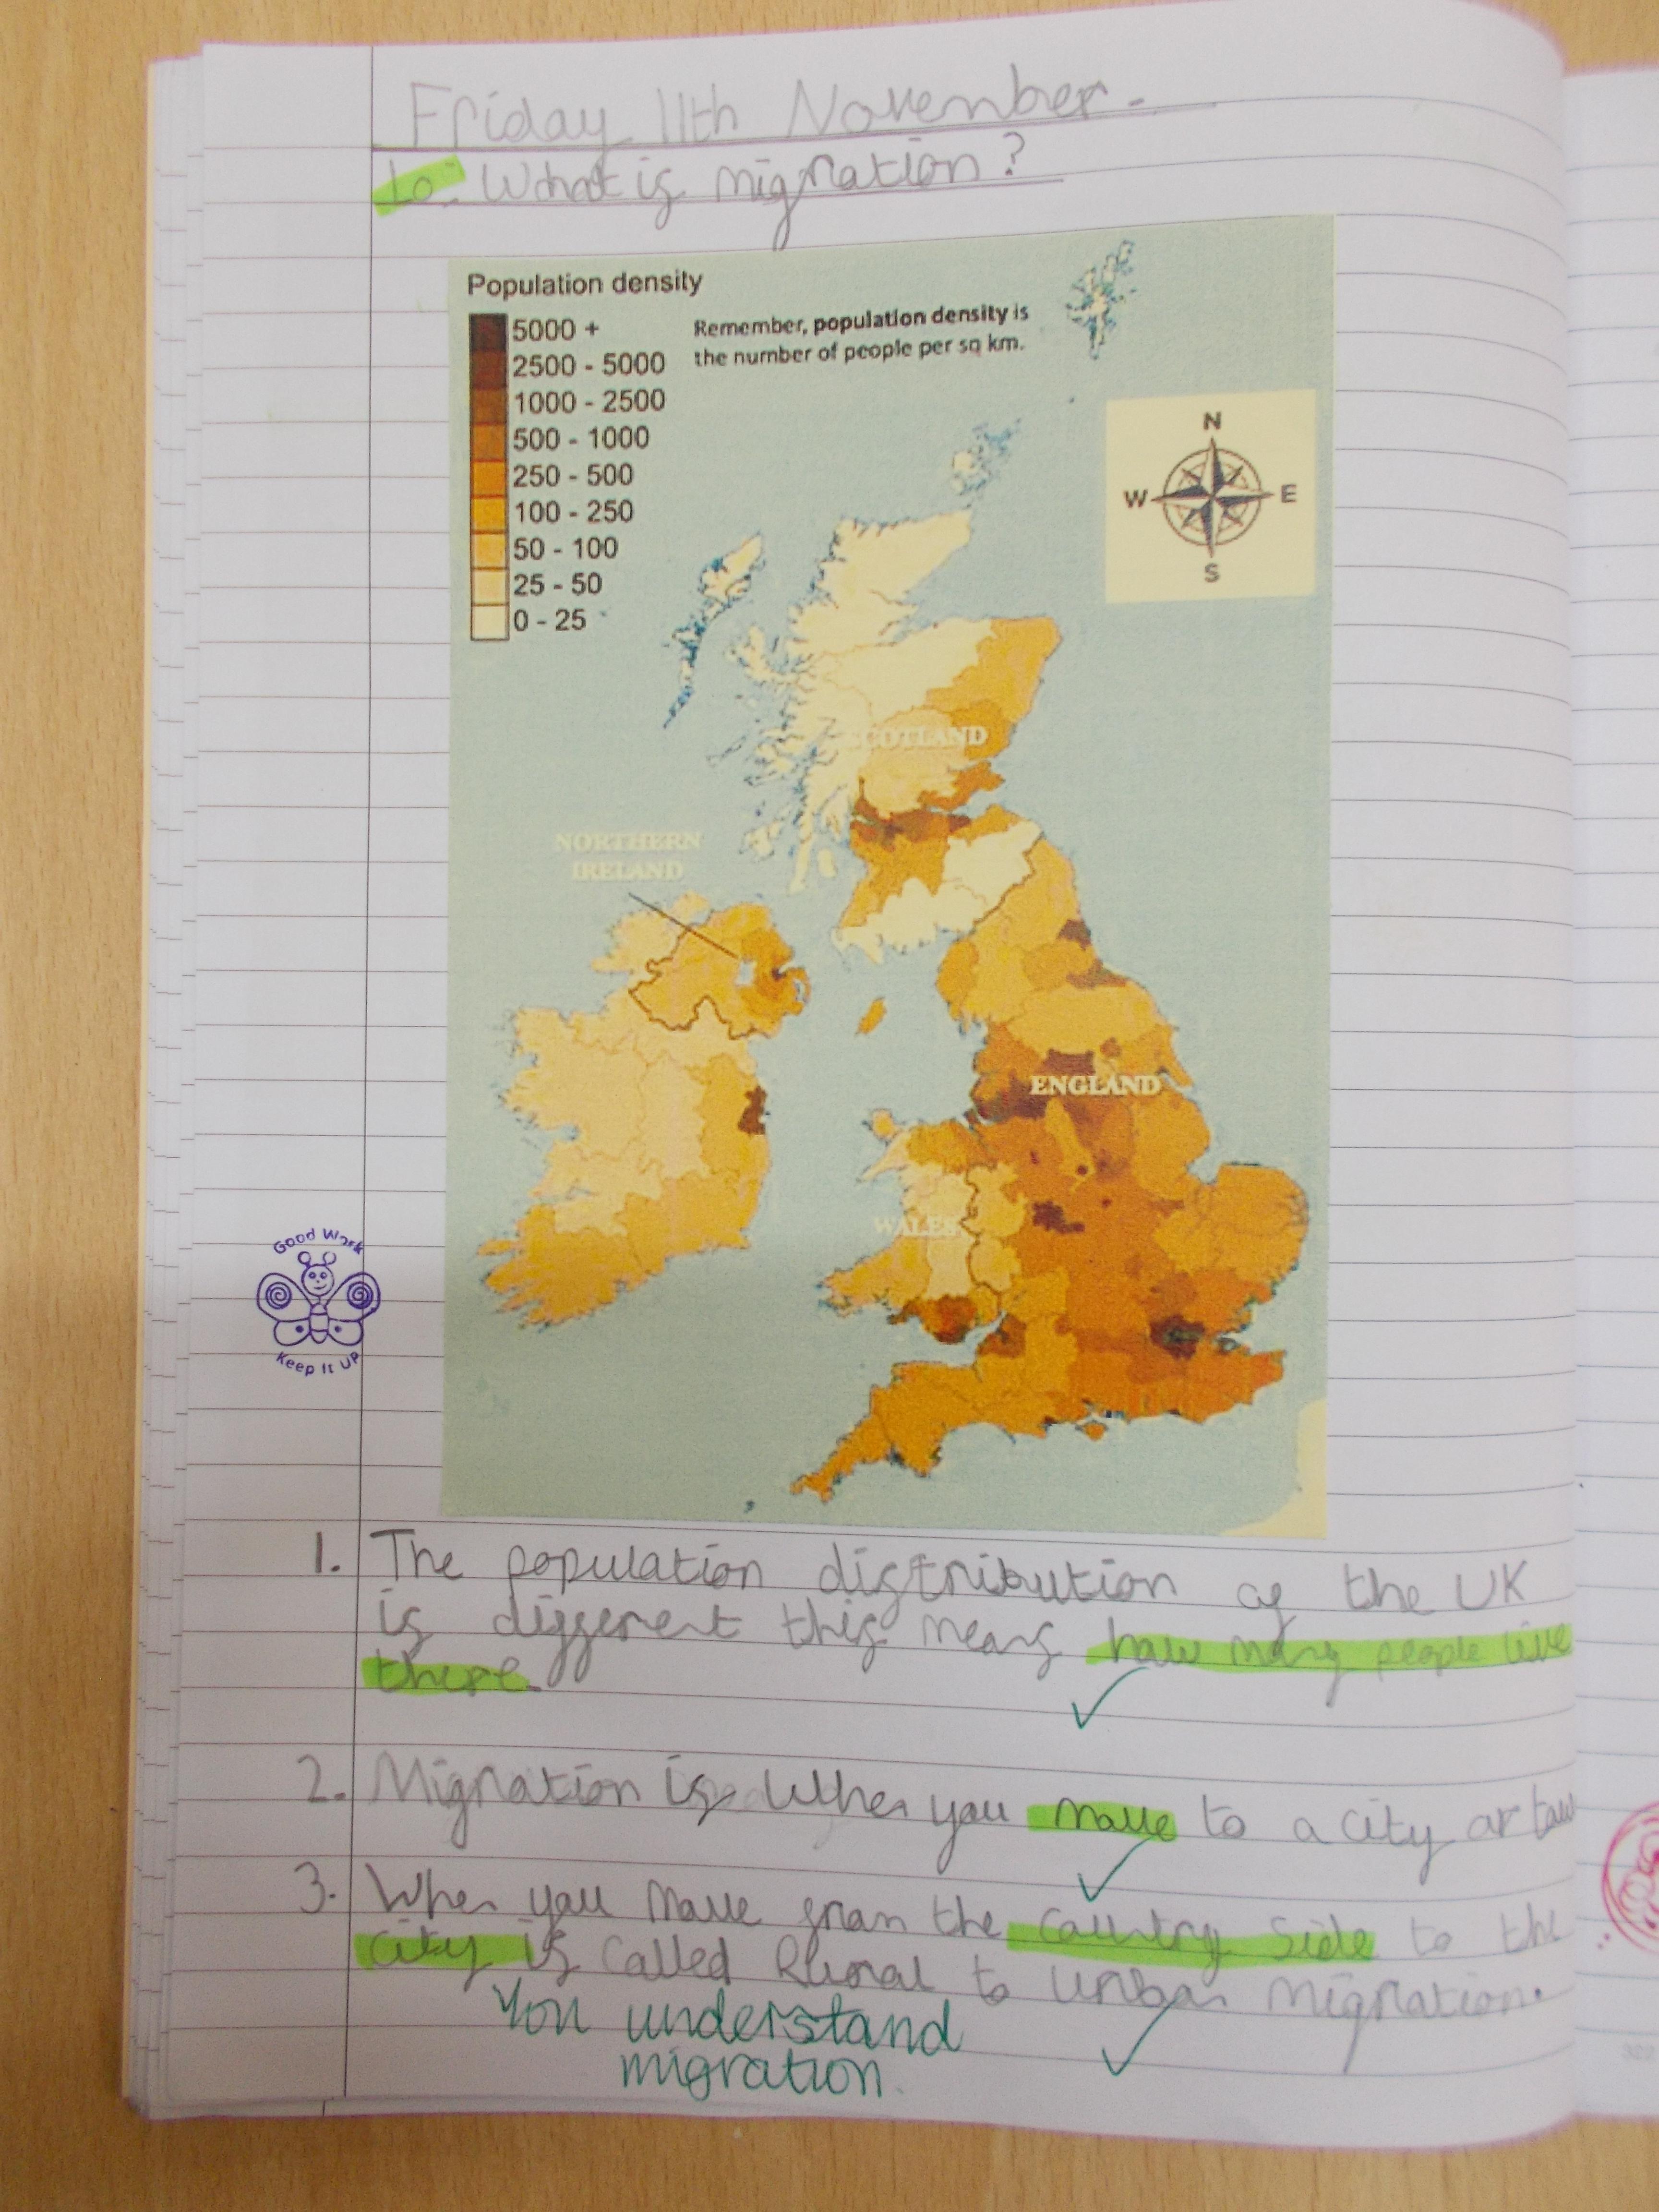 Friday 11th November.
Lo: What is migration?
Population density
5000 +
2500 - 5000
1000 - 2500
500 - 1000
250 - 500
100 - 250
50 - 100
25 - 50
0 - 25
Remember, population density is
the number of people per sq km.
N
W E
S
SCOTLAND
NORTHERN
IRELAND
ENGLAND
WALES
Good Work
Keep It Up
1. The population distribution of the UK
is different this means how many people live
there.
2. Migration is when you move to a city or tow
3. When you move from the country side to the
city is called Rural to urban migration.
You understand
migration.